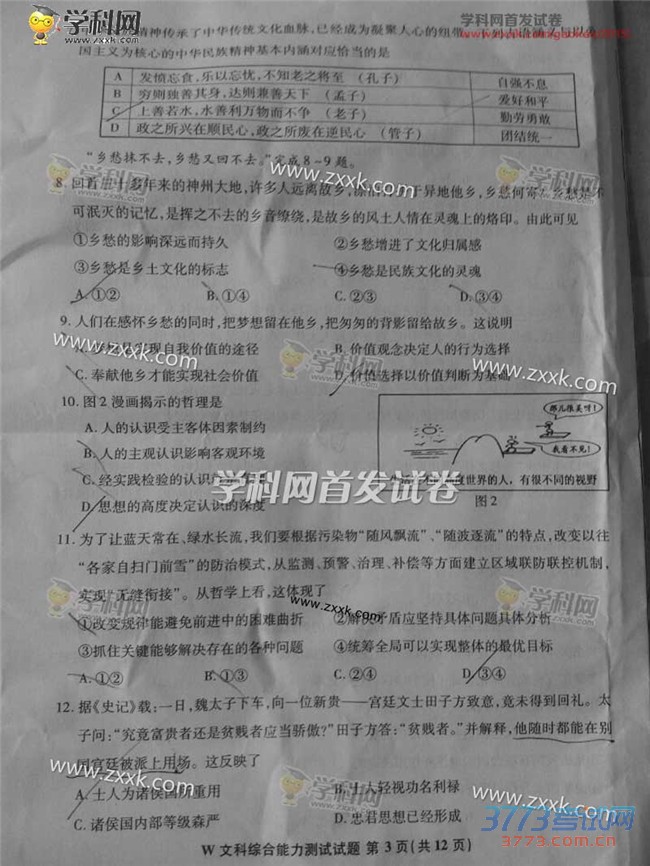 学科网
www.zxxk.com
学科网首发试卷
精神传承了中华传统文化血脉,已经成为凝聚人心的纽带
国主义为核心的中华民族精神基本内涵对应恰当的是
A 发愤忘食,乐以忘忧,不知老之将至 (孔子) 自强不息
B 穷则独善其身,达则兼善天下 (孟子) 爱好和平
C 上善若水,水善利万物而不争 (老子) 勤劳勇敢
D 政之所兴在顺民心,政之所废在逆民心 (管子) 团结统一
“乡愁抹不去,乡愁又回不去。”完成8-9题。
8. 回首 十多年来的神州大地,许多人远离故乡, 于异地他乡,乡愁何寄?乡愁是不
可泯灭的记忆,是挥之不去的乡音缭绕,是故乡的风土人情在灵魂上的烙印。由此可见
①乡愁的影响深远而持久 ②乡愁增进了文化归属感
③乡愁是乡土文化的标志 ④乡愁是民族文化的灵魂
A.①② B.①④ C.②③ D.③④
9. 人们在感怀乡愁的同时,把梦想留在他乡,把匆匆的背影留给故乡。这说明
实现自我价值的途径 B. 价值观念决定人的行为选择
C. 奉献他乡才能实现社会价值 D. 价值选择以价值判断为基础
10. 图2漫画揭示的哲理是
A. 人的认识受主客体因素制约
B. 人的主观认识影响客观环境
C. 经实践检验的认识
D. 思想的高度决定认识的深度
那儿很美呀!
我看不见!
度世界的人,有很不同的视野
图2
学科网首发试卷
11. 为了让蓝天常在、绿水长流,我们要根据污染物“随风飘流”、“随波逐流”的特点,改变以往
“各家自扫门前雪”的防治模式,从监测、预警、治理、补偿等方面建立区域联防联控机制,
实现“无缝衔接”。从哲学上看,这体现了
①改变规律能避免前进中的困难曲折 ②解决矛盾应坚持具体问题具体分析
③抓住关键能够解决存在的各种问题 ④统筹全局可以实现整体的最优目标
A.①② B.①③ C.②④ D.③④
12. 据《史记》载:一日,魏太子下车,向一位新贵——宫廷文士田子方致意,竟未得到回礼。太
子问:“究竟富贵者还是贫贱者应当骄傲?”田子方答:“贫贱者。”并解释,他随时都能在别
国宫廷被派上用场。这反映了
A. 士人为诸侯国所重用 B. 士人轻视功名利禄
C. 诸侯国内部等级森严 D. 忠君思想已经形成
W 文科综合能力测试试题 第3页(共12页)
3773考试网